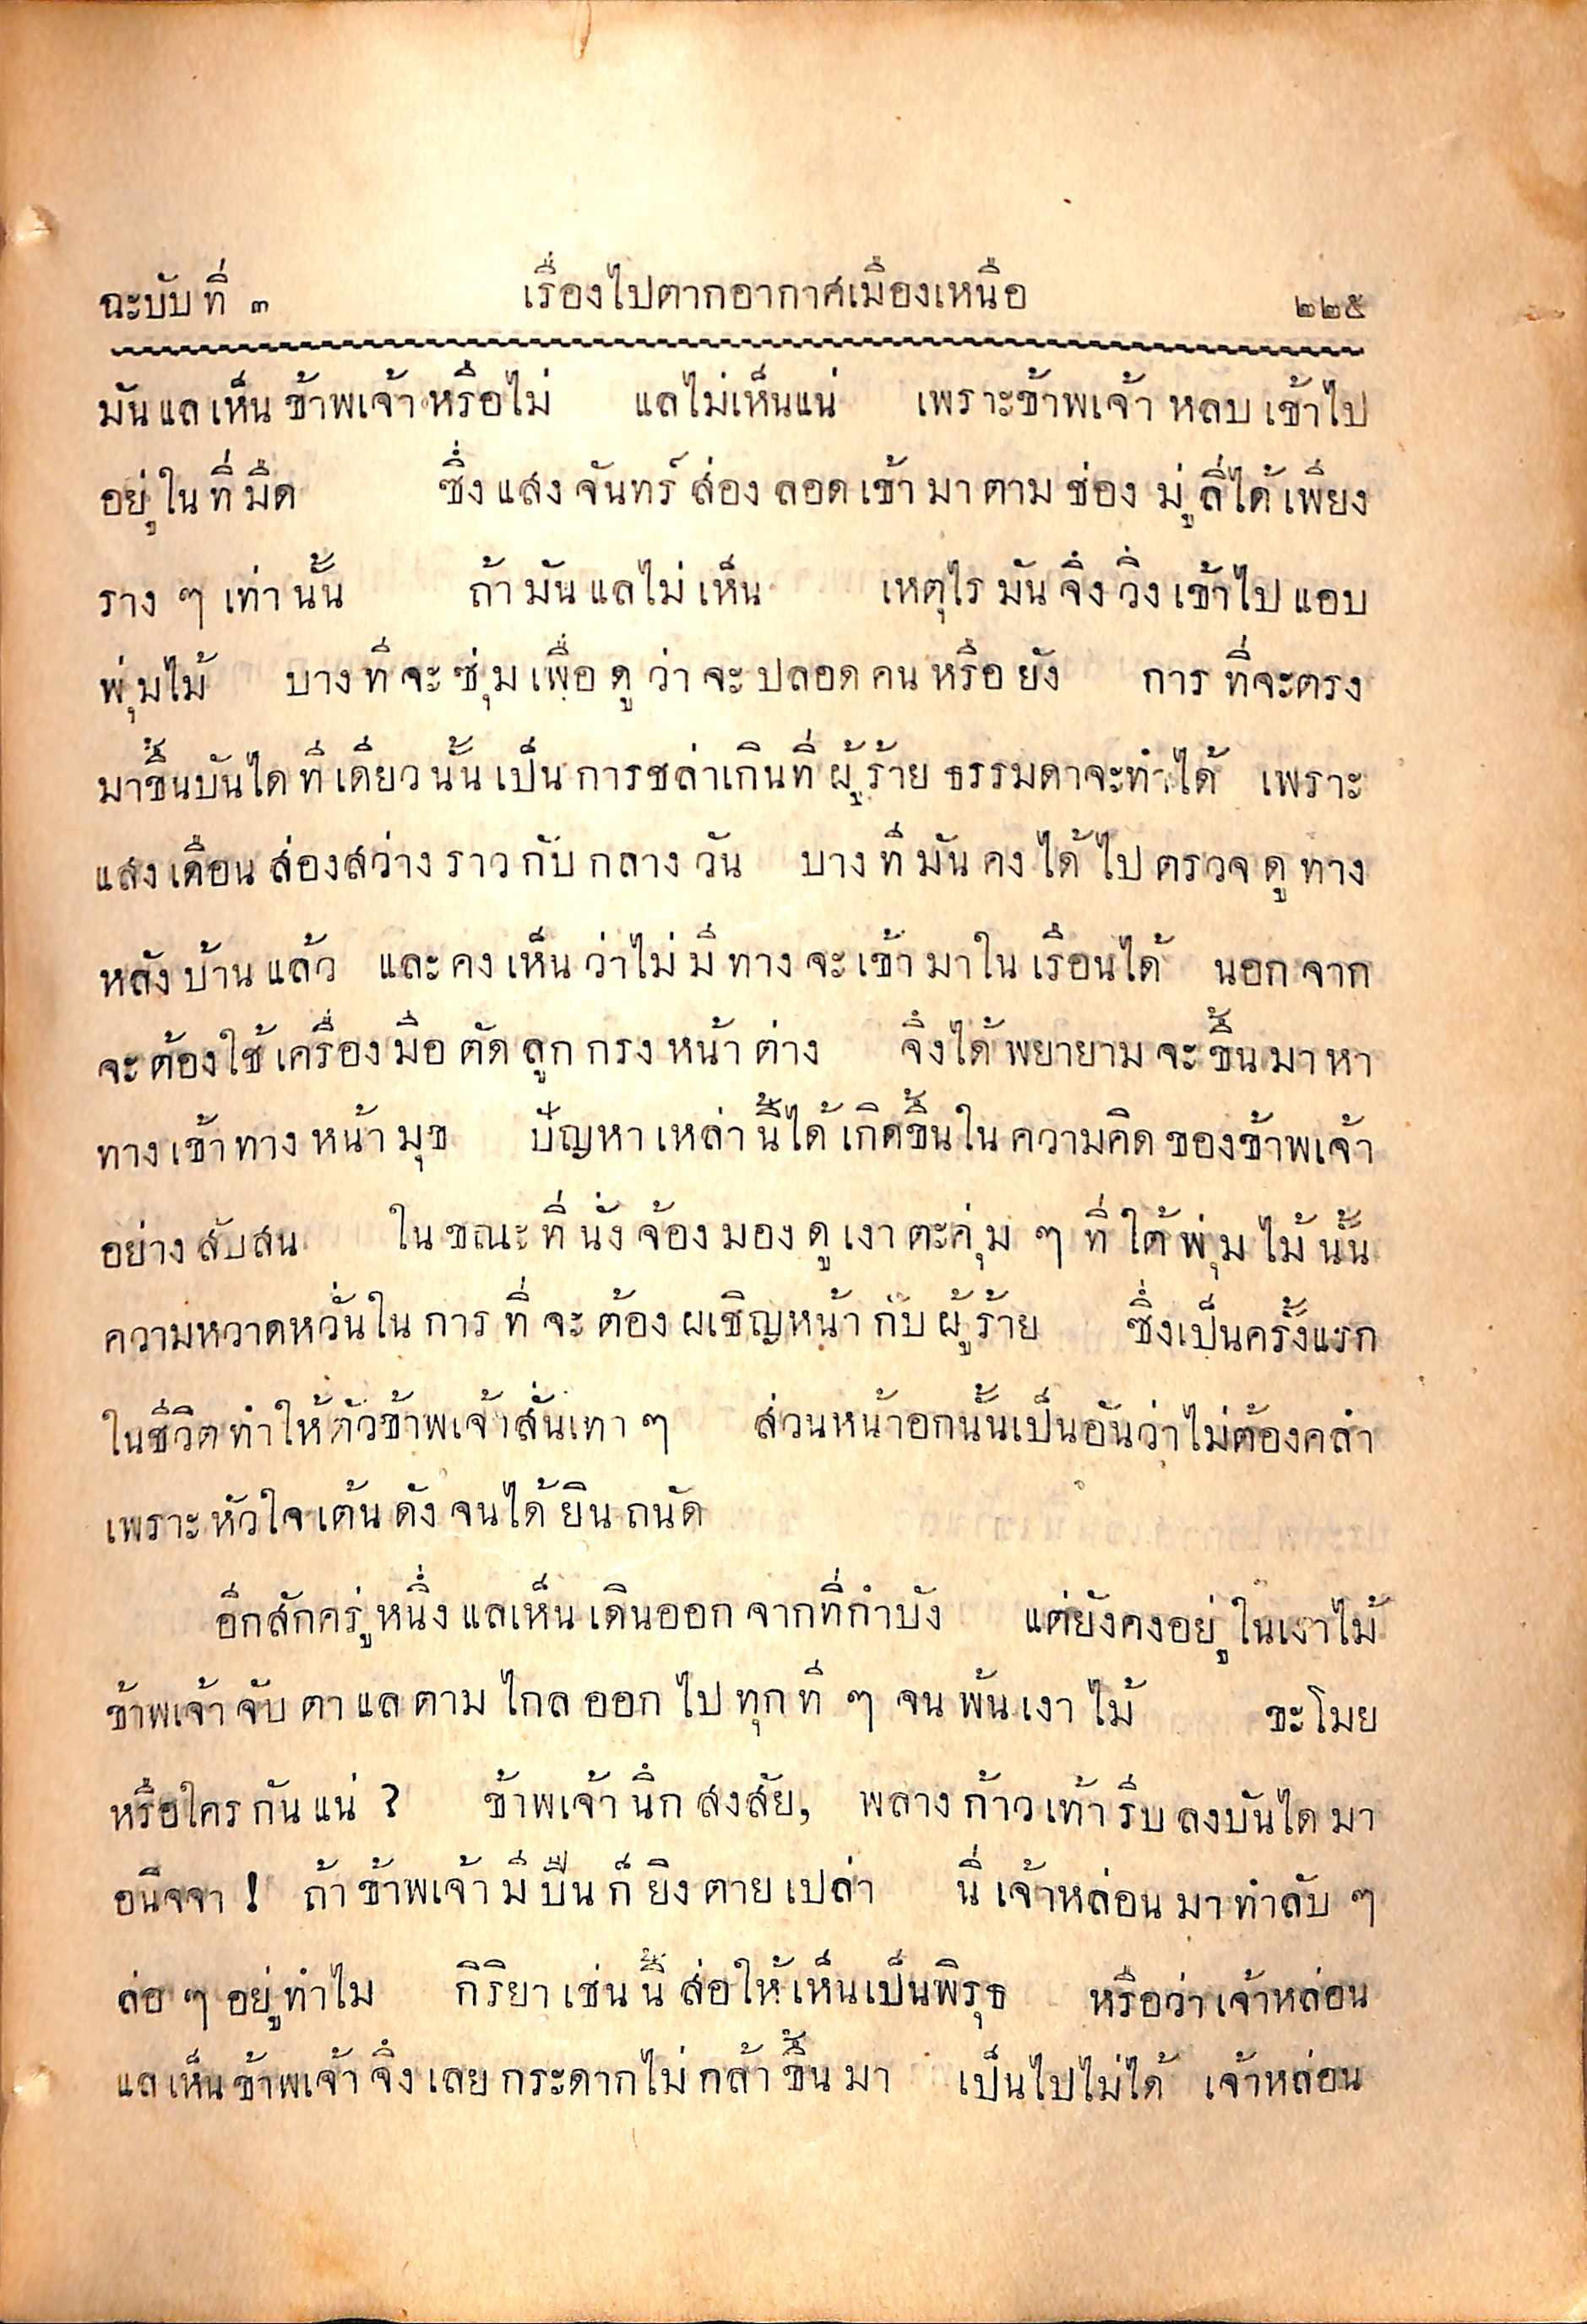 ฉะบับที่ ๓ เรื่องไปตากอากาศเมืองเหนือ ๒๒๕
มันแลเห็นข้าพเจ้าหรือไม่ แลไม่เห็นแน่ เพราะข้าพเจ้าหลบเข้าไป
อยู่ในที่มืด ซึ่งแสงจันทร์ส่องลอดเข้ามาตามช่องมู่ลี่ได้เพียง
ราง ๆ เท่านั้น ถ้ามันแลไม่เห็น เหตุไรมันจึ่งวิ่งเข้าไปแอบ
พุ่มไม้ บางทีจะซุ่มเพื่อดูว่าจะปลอดคนหรือยัง การที่จะตรง
มาขึ้นบันไดทีเดียวนั้นเป็นการชล่าเกินที่ผู้ร้ายธรรมดาจะทำได้ เพราะ
แสงเดือนส่องสว่างราวกับกลางวัน บางทีมันคงได้ไปตรวจดูทาง
หลังบ้านแล้ว และคงเห็นว่าไม่มีทางจะเข้ามาในเรือนได้ นอกจาก
จะต้องใช้เครื่องมือตัดลูกกรงหน้าต่าง จึงได้พยายามจะขึ้นมาหา
ทางเข้าทางหน้ามุข ปัญหาเหล่านี้ได้เกิดขึ้นในความคิดของข้าพเจ้า
อย่างสับสน ในขณะที่นั่งจ้องมองดูเงาตะคุ่ม ๆ ที่ใต้พุ่มไม้นั้น
ความหวาดหวั่นในการที่จะต้องผเชิญหน้ากับผู้ร้าย ซึ่งเป็นครั้งแรก
ในชีวิตทำให้ตัวข้าพเจ้าสั่นเทา ๆ ส่วนหน้าอกนั้นเป็นอันว่าไม่ต้องคลำ
เพราะหัวใจเต้นดังจนได้ยินถนัด
อีกสักครู่หนึ่งแลเห็นเดินออกจากที่กำบัง แต่ยังคงอยู่ในเงาไม้
ข้าพเจ้าจับตาแลตามไกลออกไปทุกที ๆ จนพ้นเงาไม้ ขะโมย
หรือใครกันแน่ ? ข้าพเจ้านึกสงสัย, พลางก้าวเท้ารีบลงบันไดมา
อนิจจา ! ถ้าข้าพเจ้ามีปืนก็ยิงตายเปล่า นี่เจ้าหล่อนมาทำลับ ๆ
ล่อ ๆ อยู่ทำไม กิริยาเช่นนี้ส่อให้เห็นเป็นพิรุธ หรือว่าเจ้าหล่อน
แลเห็นข้าพเจ้าจึ่งเลยกระดากไม่กล้าขึ้นมา เป็นไปไม่ได้ เจ้าหล่อน